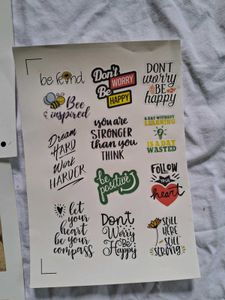 be kind
Bee
inspired
Dream
HARD
Work
HARDER
Don't
WORRY
Be
HAPPY
you are
STRONGER
than you
THINK
DON'T
worry
Be
happy
A DAY WITHOUT
LEARNING
IS A DAY
WASTED
be
positive
FOLLOW
your
heart
let
your
heart
be your
compass
Don't
Worry
Be
Happy
STILL
HERE
STILL
STRONG